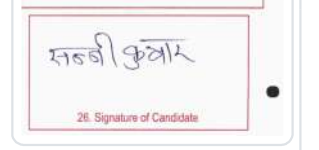 सन्नी कुमार
26. Signature of Candidate